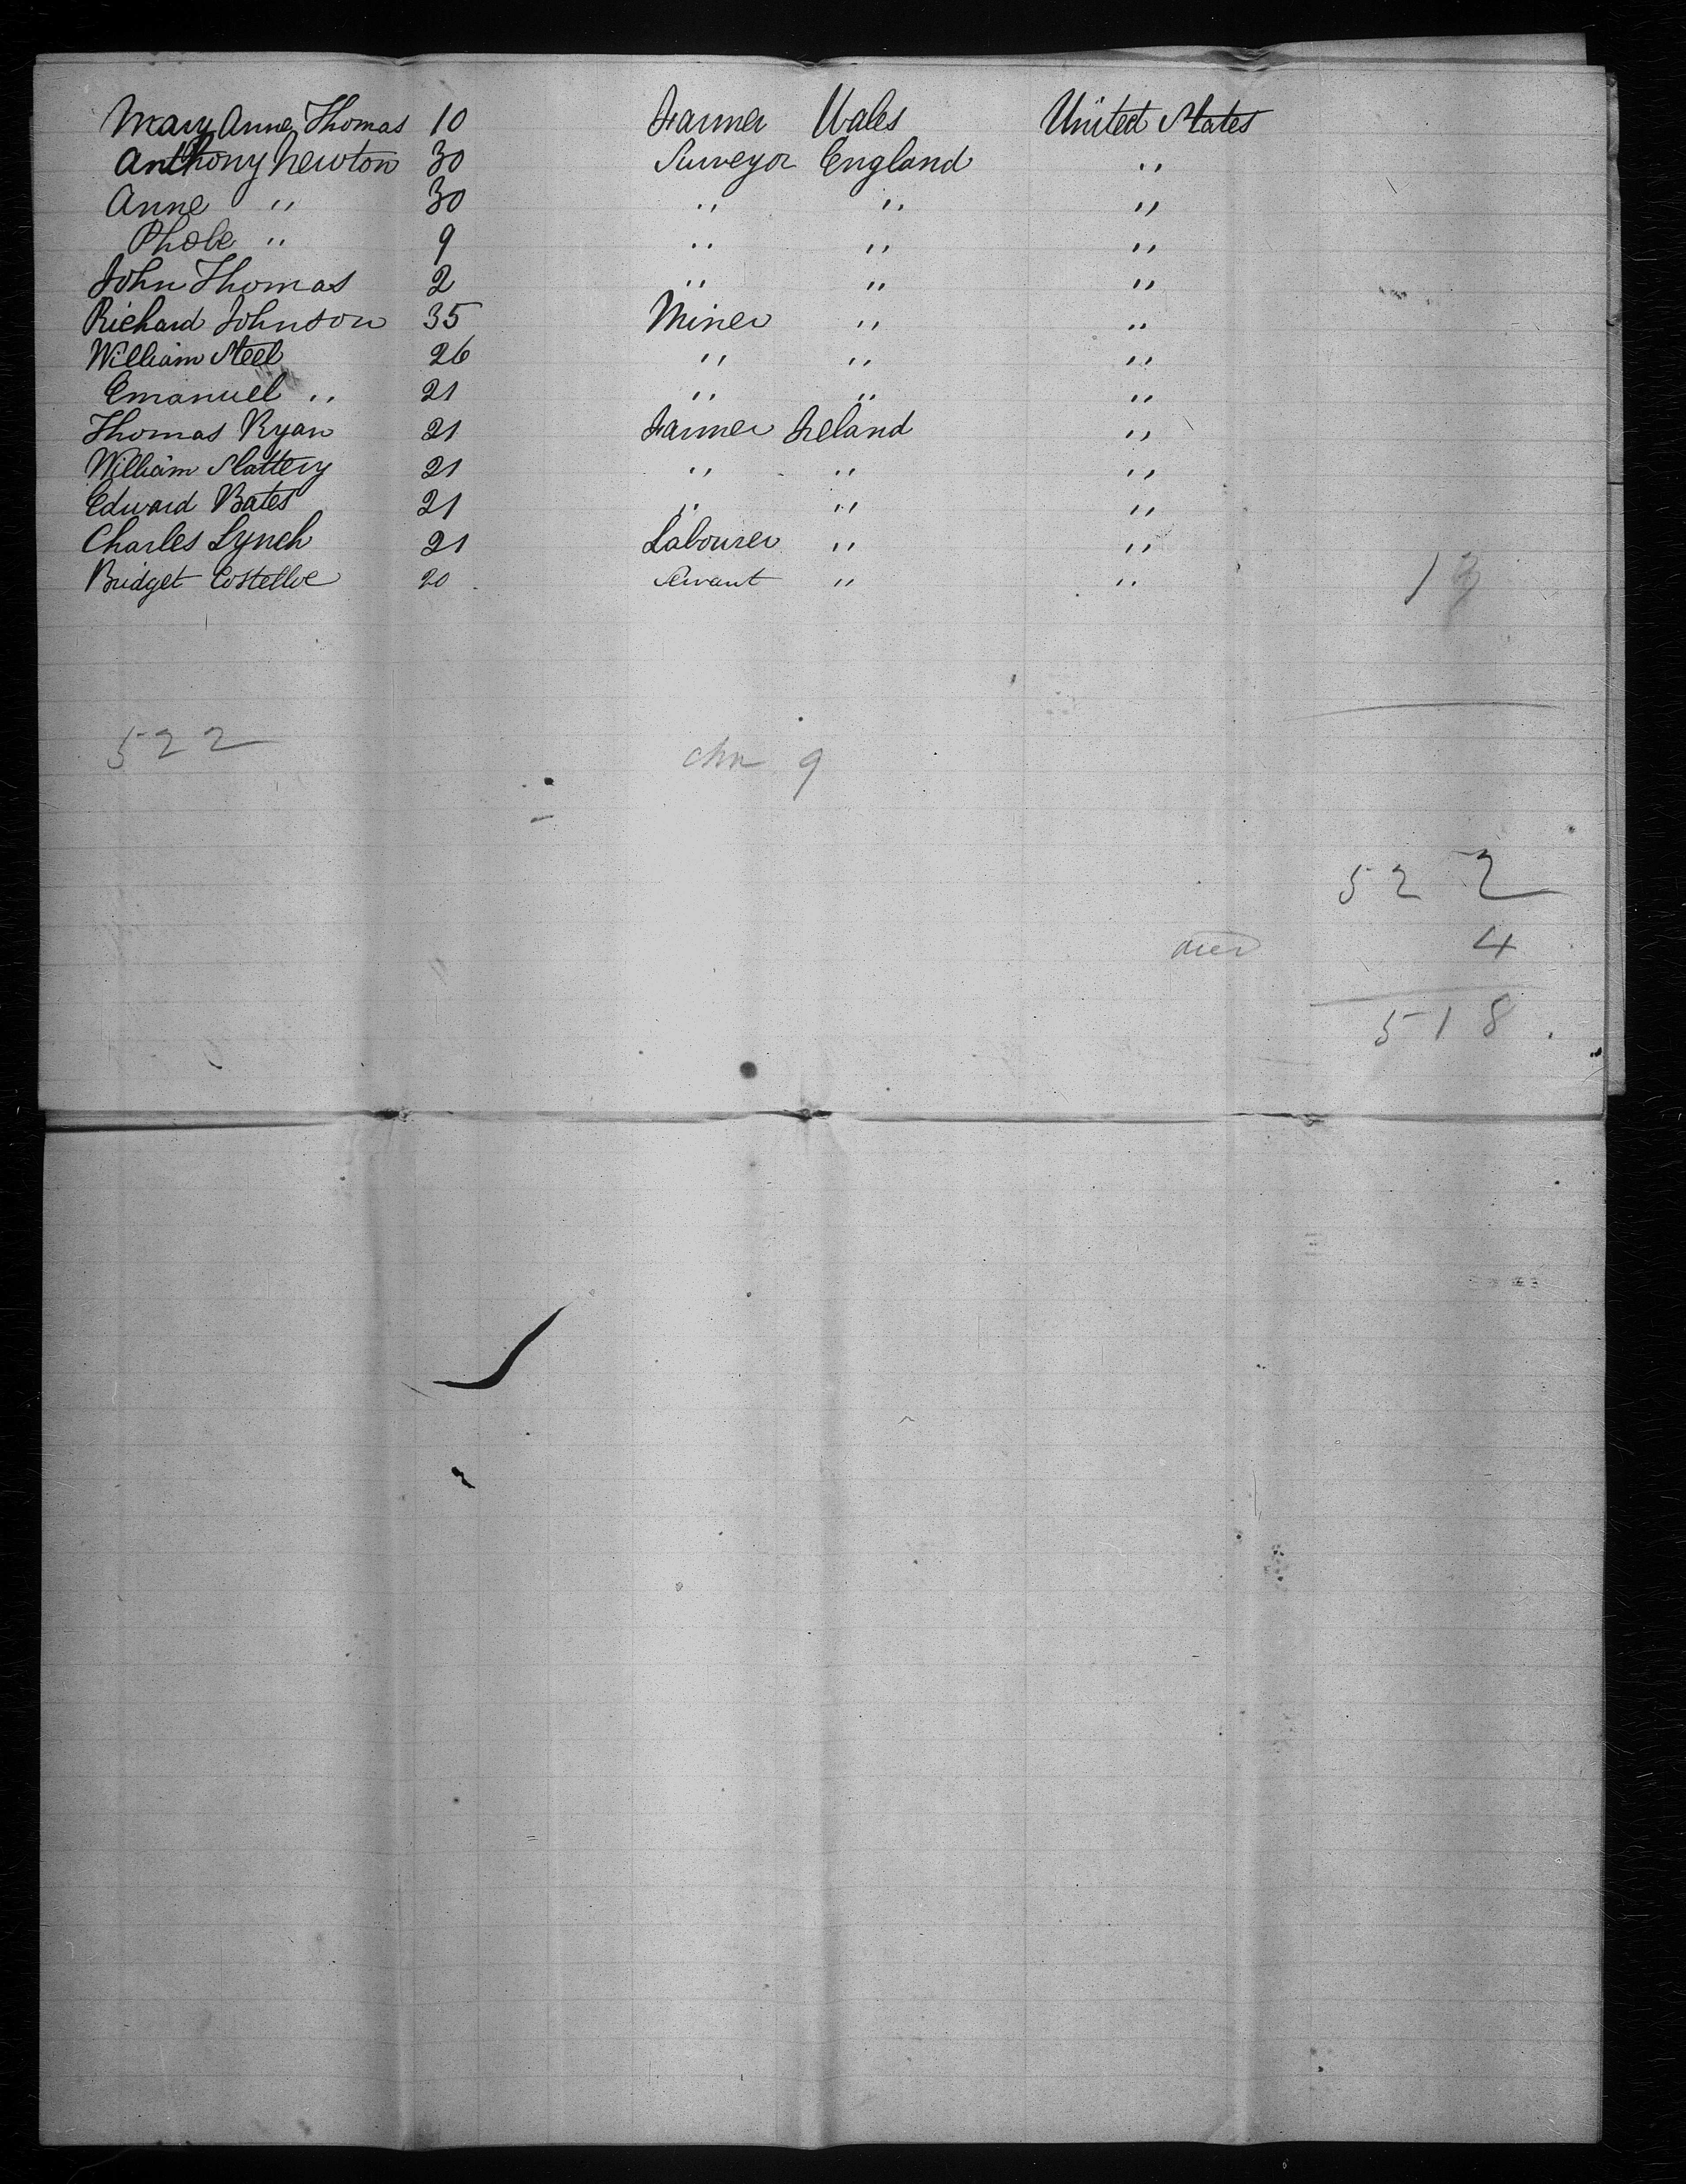 Mary Anne Thomas 10 Farmer Wales United States
Anthony Newton 30 Surveyor England "
Anne " 30 " " "
Phobe " 9 " " "
John Thomas 2 " " "
Richard Johnson 35 Miner " "
William Steel 26 " " "
Emanuel " 21 " " "
Thomas Ryan 21 Farmer Ireland "
William Slattery 21 " " "
Edward Bates 21 " " "
Charles Lynch 21 Labourer " "
Bridget Costelloe 20 Servant " "
13
522 chn 9
522
4
518.